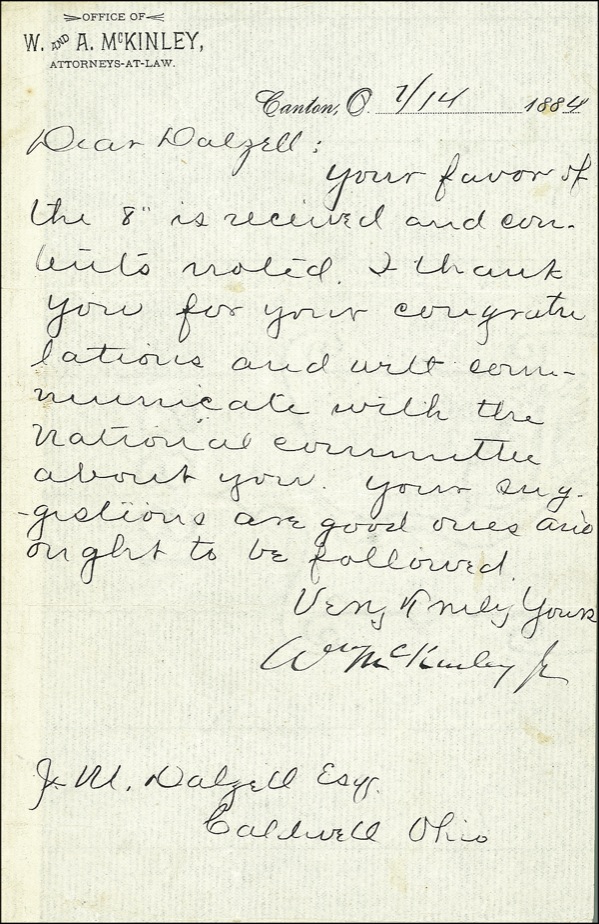 OFFICE OF
W. AND A. McKINLEY,
ATTORNEYS-AT-LAW.
Canton, O. 7/14 1884
Dear Dalzell:
Your favor of
the 8" is received and con-
tents noted. I thank
you for your congratu
lations and will com-
municate with the
National committee
about you. Your sug-
-gestions are good ones and
ought to be followed.
Very Truly Yours
Wm McKinley Jr
J. M. Dalzell Esqr.
Caldwell Ohio